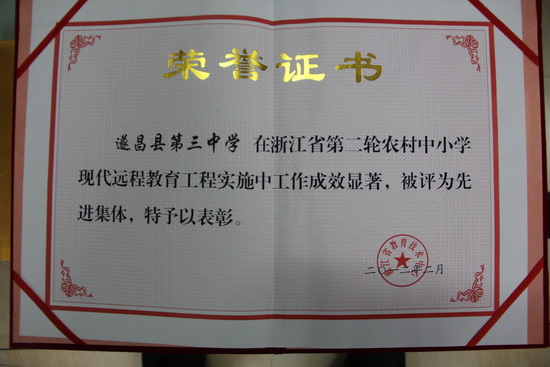 荣誉证书
遂昌县第三中学 在浙江省第二轮农村中小学
现代远程教育工程实施中工作成效显著，被评为先
进集体，特予以表彰。
浙江省教育技术中心
二〇一二年二月